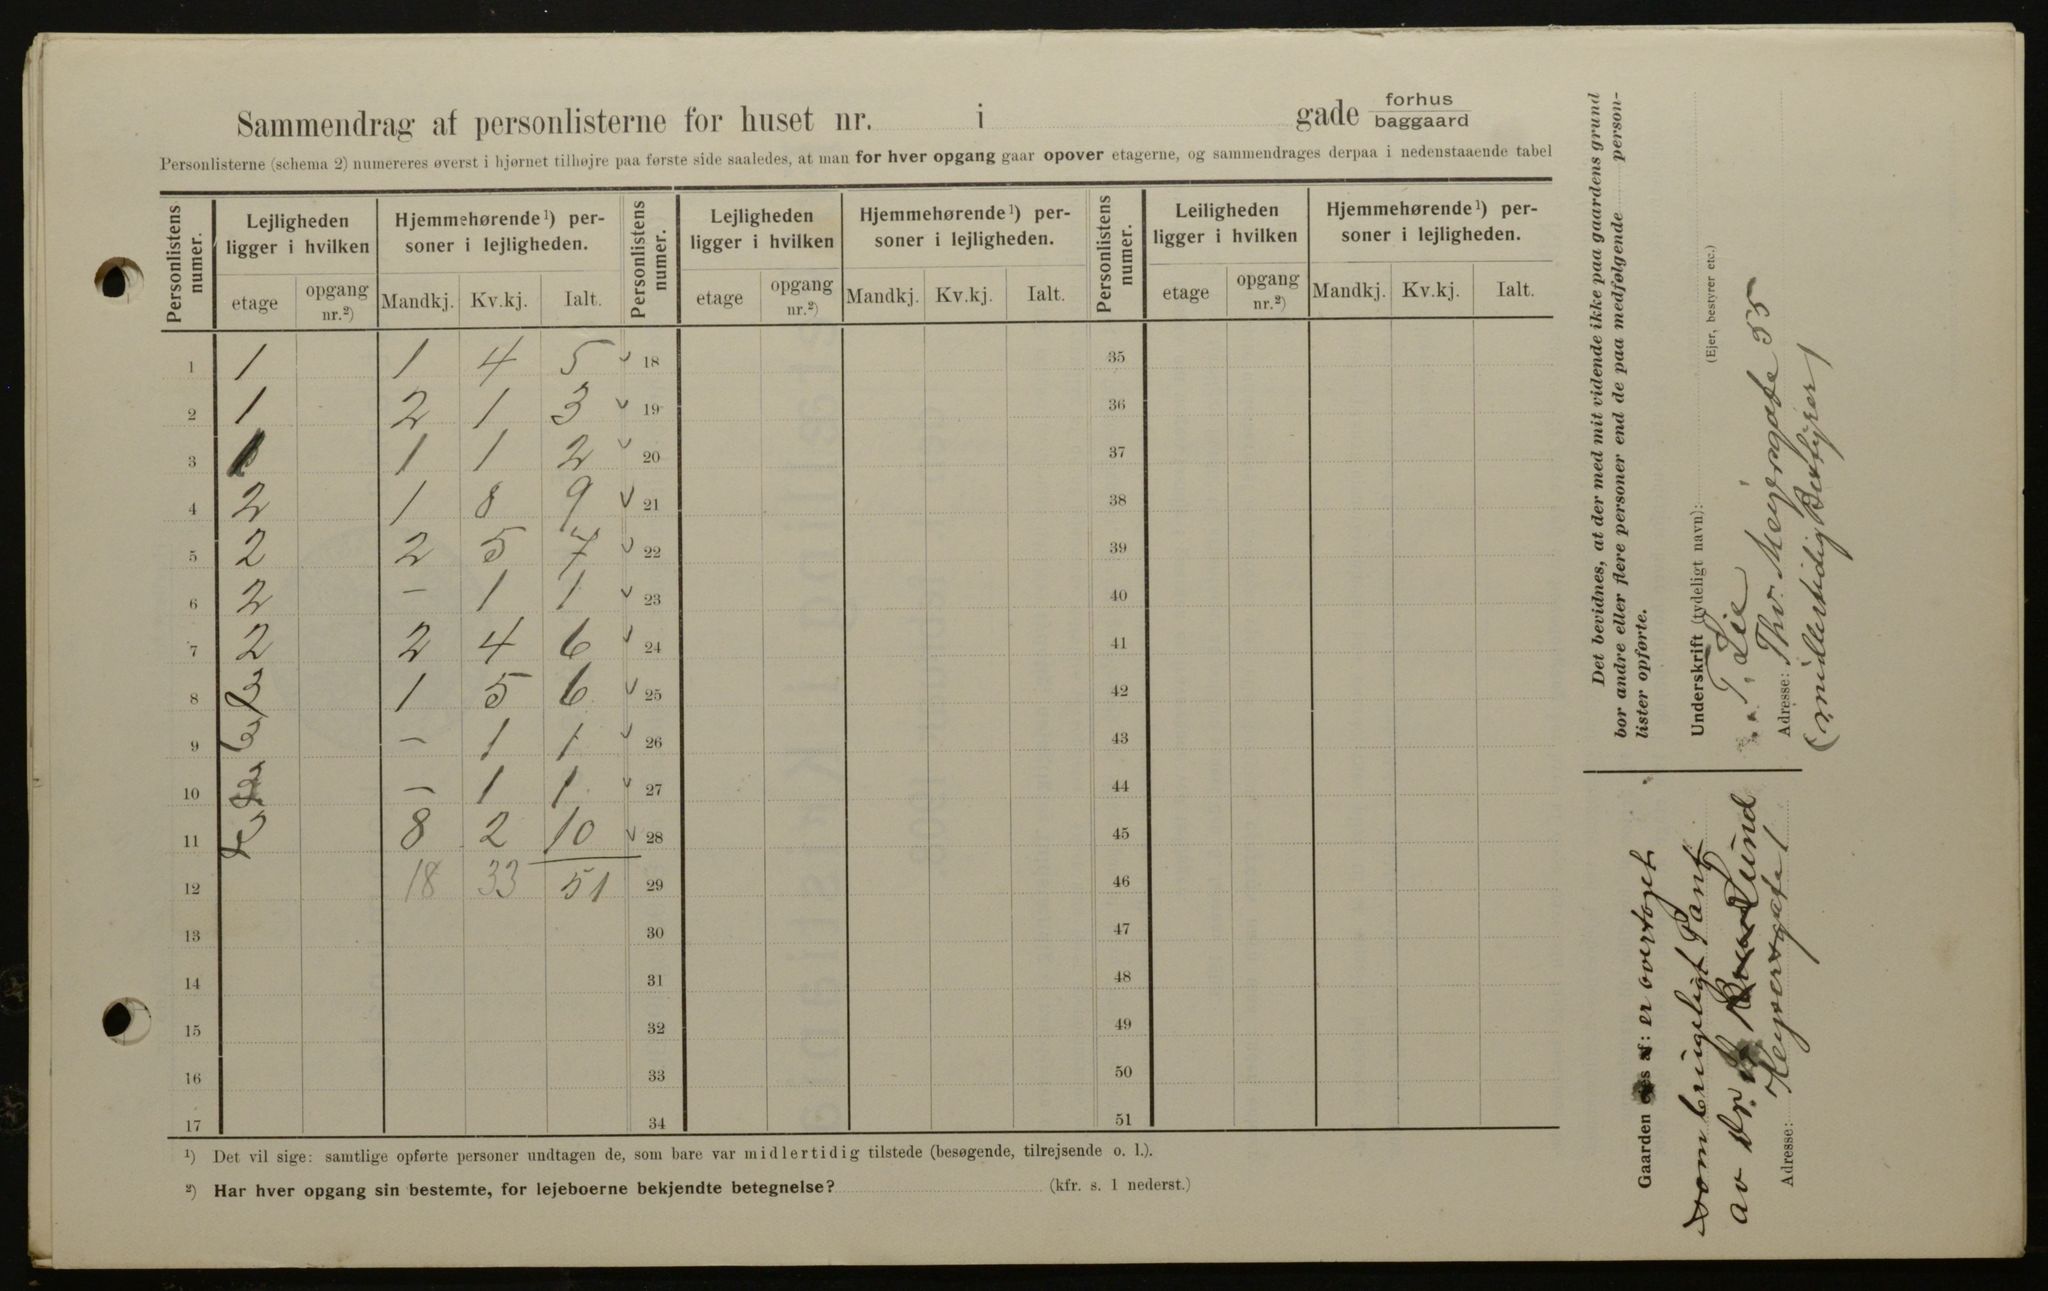 Sammendrag af personlisterne for huset nr. i gade forhus
baggaard
Personlisterne (schema 2) numereres øverst i hjørnet tilhøjre paa første side saaledes, at man for hver opgang gaar opover etagerne, og sammendrages derpaa i nedenstaaende tabel
Personlistens numer. Lejligheden ligger i hvilken Hjemmehørende¹) personer i lejligheden. Personlistens numer. Lejligheden ligger i hvilken Hjemmehørende¹) personer i lejligheden. Personlistens numer. Leiligheden ligger i hvilken Hjemmehørende¹) personer i lejligheden.
etage opgang nr.²) Mandkj. Kv.kj. Ialt. etage opgang nr.²) Mandkj. Kv.kj. Ialt. etage opgang nr.²) Mandkj. Kv.kj. Ialt.
1 1 1 4 5 18 35
2 1 2 1 3 19 36
3 1 1 2 20 37
4 2 1 8 9 21 38
5 2 2 5 7 22 39
6 2 – 1 1 23 40
7 2 2 4 6 24 41
8 1 5 6 25 42
9 – 1 1 26 43
10 – 1 1 27 44
11 8 2 10 28 45
12 18 33 51 29 46
13 30 47
14 31 48
15 32 49
16 33 50
17 34 51
¹) Det vil sige: samtlige opførte personer undtagen de, som bare var midlertidig tilstede (besøgende, tilrejsende o. l.).
²) Har hver opgang sin bestemte, for lejeboerne bekjendte betegnelse? (kfr. s. 1 nederst.)
Det bevidnes, at der med mit vidende ikke paa gaardens grund
bor andre eller flere personer end de paa medfølgende person-
lister opførte.
Underskrift (tydeligt navn):
(Ejer, bestyrer etc.)
T. Lie
Adresse: Thv. Meyersgate 55
(midlertidig Bestyrer)
Gaarden af: er overtaget
som brugeligt Pant
av Dr. Lund
Adresse: